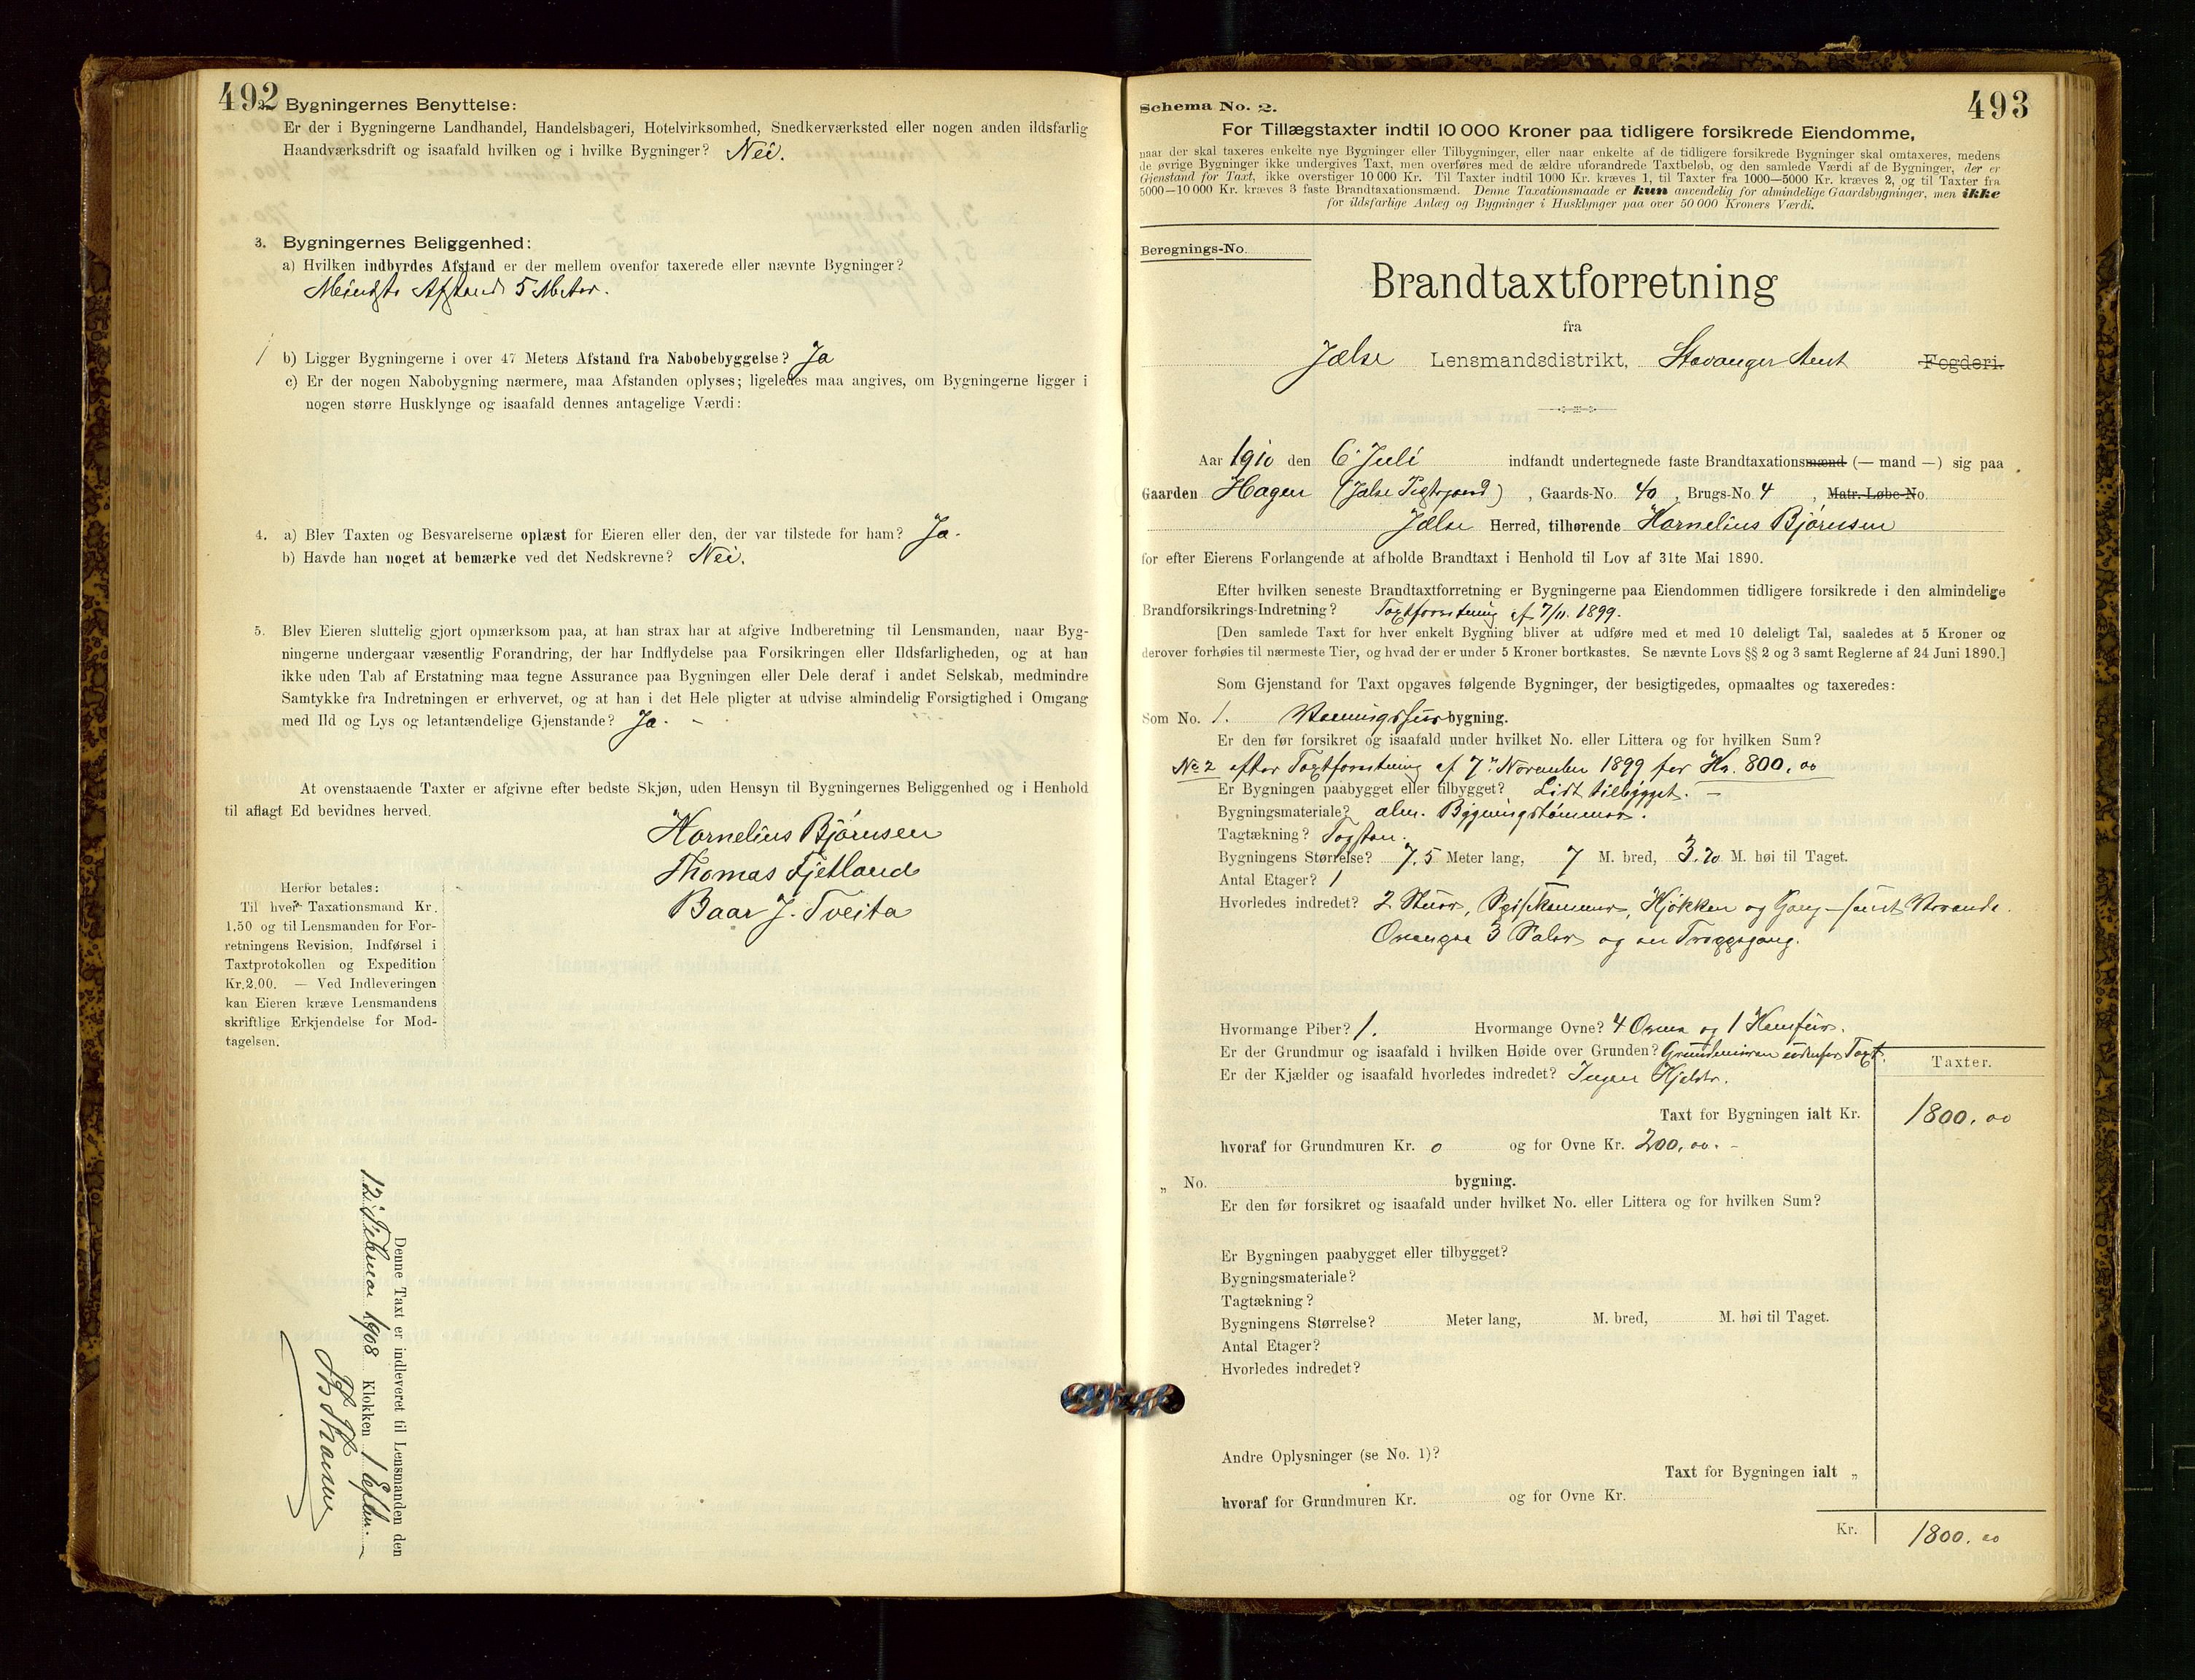 492
2. Bygningernes Benyttelse:
Er der i Bygningerne Landhandel, Handelsbageri, Hotelvirksomhed, Snedkerværksted eller nogen anden ildsfarlig
Haandværksdrift og isaafald hvilken og i hvilke Bygninger? Nei.
3. Bygningernes Beliggenhed:
a) Hvilken indbyrdes Afstand er der mellem ovenfor taxerede eller nævnte Bygninger?
Mindste Afstand 5 Meter.
b) Ligger Bygningerne i over 47 Meters Afstand fra Nabobebyggelse? Ja
c) Er der nogen Nabobygning nærmere, maa Afstanden oplyses; ligeledes maa angives, om Bygningerne ligger i
nogen større Husklynge og isaafald dennes antagelige Værdi:
4. a) Blev Taxten og Besvarelserne oplæst for Eieren eller den, der var tilstede for ham? Ja.
b) Havde han noget at bemærke ved det Nedskrevne? Nei.
5. Blev Eieren sluttelig gjort opmærksom paa, at han strax har at afgive Indberetning til Lensmanden, naar Byg-
ningerne undergaar væsentlig Forandring, der har Indflydelse paa Forsikringen eller Ildsfarligheden, og at han
ikke uden Tab af Erstatning maa tegne Assurance paa Bygningen eller Dele deraf i andet Selskab, medmindre
Samtykke fra Indretningen er erhvervet, og at han i det Hele pligter at udvise almindelig Forsigtighed i Omgang
med Ild og Lys og letantændelige Gjenstande? Ja. -
At ovenstaaende Taxter er afgivne efter bedste Skjøn, uden Hensyn til Bygningernes Beliggenhed og i Henhold
til aflagt Ed bevidnes herved.
Kornelius Bjørnsen
Thomas Fjetland
Baar J. Tveita
Herfor betales:
Til hver Taxationsmand Kr.
1.50 og til Lensmanden for For-
retningens Revision, Indførsel i
Taxtprotokollen og Expedition
Kr. 2.00. — Ved Indleveringen
kan Eieren kræve Lensmandens
skriftlige Erkjendelse for Mod-
tagelsen.
Denne Taxt er indleveret til Lensmanden den
12 Februar 1908 Klokken 1 Efter.
493
Schema No. 2.
For Tillægstaxter indtil 10 000 Kroner paa tidligere forsikrede Eiendomme,
naar der skal taxeres enkelte nye Bygninger eller Tilbygninger, eller naar enkelte af de tidligere forsikrede Bygninger skal omtaxeres, medens
de øvrige Bygninger ikke undergives Taxt, men overføres med de ældre uforandrede Taxtbeløb, og den samlede Værdi af de Bygninger, der er
Gjenstand for Taxt, ikke overstiger 10 000 Kr. Til Taxter indtil 1000 Kr. kræves 1, til Taxter fra 1000—5000 Kr. kræves 2, og til Taxter fra
5000—10 000 Kr. kræves 3 faste Brandtaxationsmænd. Denne Taxationsmaade er kun anvendelig for almindelige Gaardsbygninger, men ikke
for ildsfarlige Anlæg og Bygninger i Husklynger paa over 50 000 Kroners Værdi.
Beregnings-No.
Brandtaxtforretning
fra
Jælse Lensmandsdistrikt, Stavanger Amt Fogderi.
Aar 1910 den 6 Juli indfandt undertegnede faste Brandtaxationsmænd (— mand —) sig paa
Gaarden Hagen (Jælse Prestegaard), Gaards-No. 40, Brugs-No. 4, Matr.-Løbe-No.
Jælse Herred, tilhørende Kornelius Bjørnsen
for efter Eierens Forlangende at afholde Brandtaxt i Henhold til Lov af 31te Mai 1890.
Efter hvilken seneste Brandtaxtforretning er Bygningerne paa Eiendommen tidligere forsikrede i den almindelige
Brandforsikrings-Indretning? Taxtforretning af 7/11. 1899.
[Den samlede Taxt for hver enkelt Bygning bliver at udføre med et med 10 deleligt Tal, saaledes at 5 Kroner og
derover forhøies til nærmeste Tier, og hvad der er under 5 Kroner bortkastes. Se nævnte Lovs §§ 2 og 3 samt Reglerne af 24 Juni 1890.]
Som Gjenstand for Taxt opgaves følgende Bygninger, der besigtigedes, opmaaltes og taxeredes:
Som No. 1. Vaaningshusbygning.
Er den før forsikret og isaafald under hvilket No. eller Littera og for hvilken Sum?
No 2 efter Taxtforretning af 7. November 1899 for Kr. 800,00
Er Bygningen paabygget eller tilbygget? Lidt tilbygget. —
Bygningsmateriale? alm. Bygningstømmer.
Tagtækning? Tagsten.
Bygningens Størrelse? 7,5 Meter lang, 7 M. bred, 3.70 M. høi til Taget.
Antal Etager? 1
Hvorledes indredet? 2 Stuer, Spiskammer, Kjøkken og Gang - samt Veranda.
Ovenpaa 3 Saler og en Trappegang.
Hvormange Piber? 1. Hvormange Ovne? 4 Ovne og 1 Komfur.
Er der Grundmur og isaafald i hvilken Høide over Grunden? Grundmuren udenfor Taxt.
Er der Kjælder og isaafald hvorledes indredet? Ingen Kjelder.
Taxter.
Taxt for Bygningen ialt Kr. 1800,00
hvoraf for Grundmuren Kr. 0 og for Ovne Kr. 200,00. -
„ No. bygning.
Er den før forsikret og isaafald under hvilket No. eller Littera og for hvilken Sum?
Er Bygningen paabygget eller tilbygget?
Bygningsmateriale?
Tagtækning?
Bygningens Størrelse? Meter lang, M. bred, M. høi til Taget.
Antal Etager?
Hvorledes indredet?
Andre Oplysninger (se No. 1)?
Taxt for Bygningen ialt „
hvoraf for Grundmuren Kr. og for Ovne Kr.
Kr. 1800.00